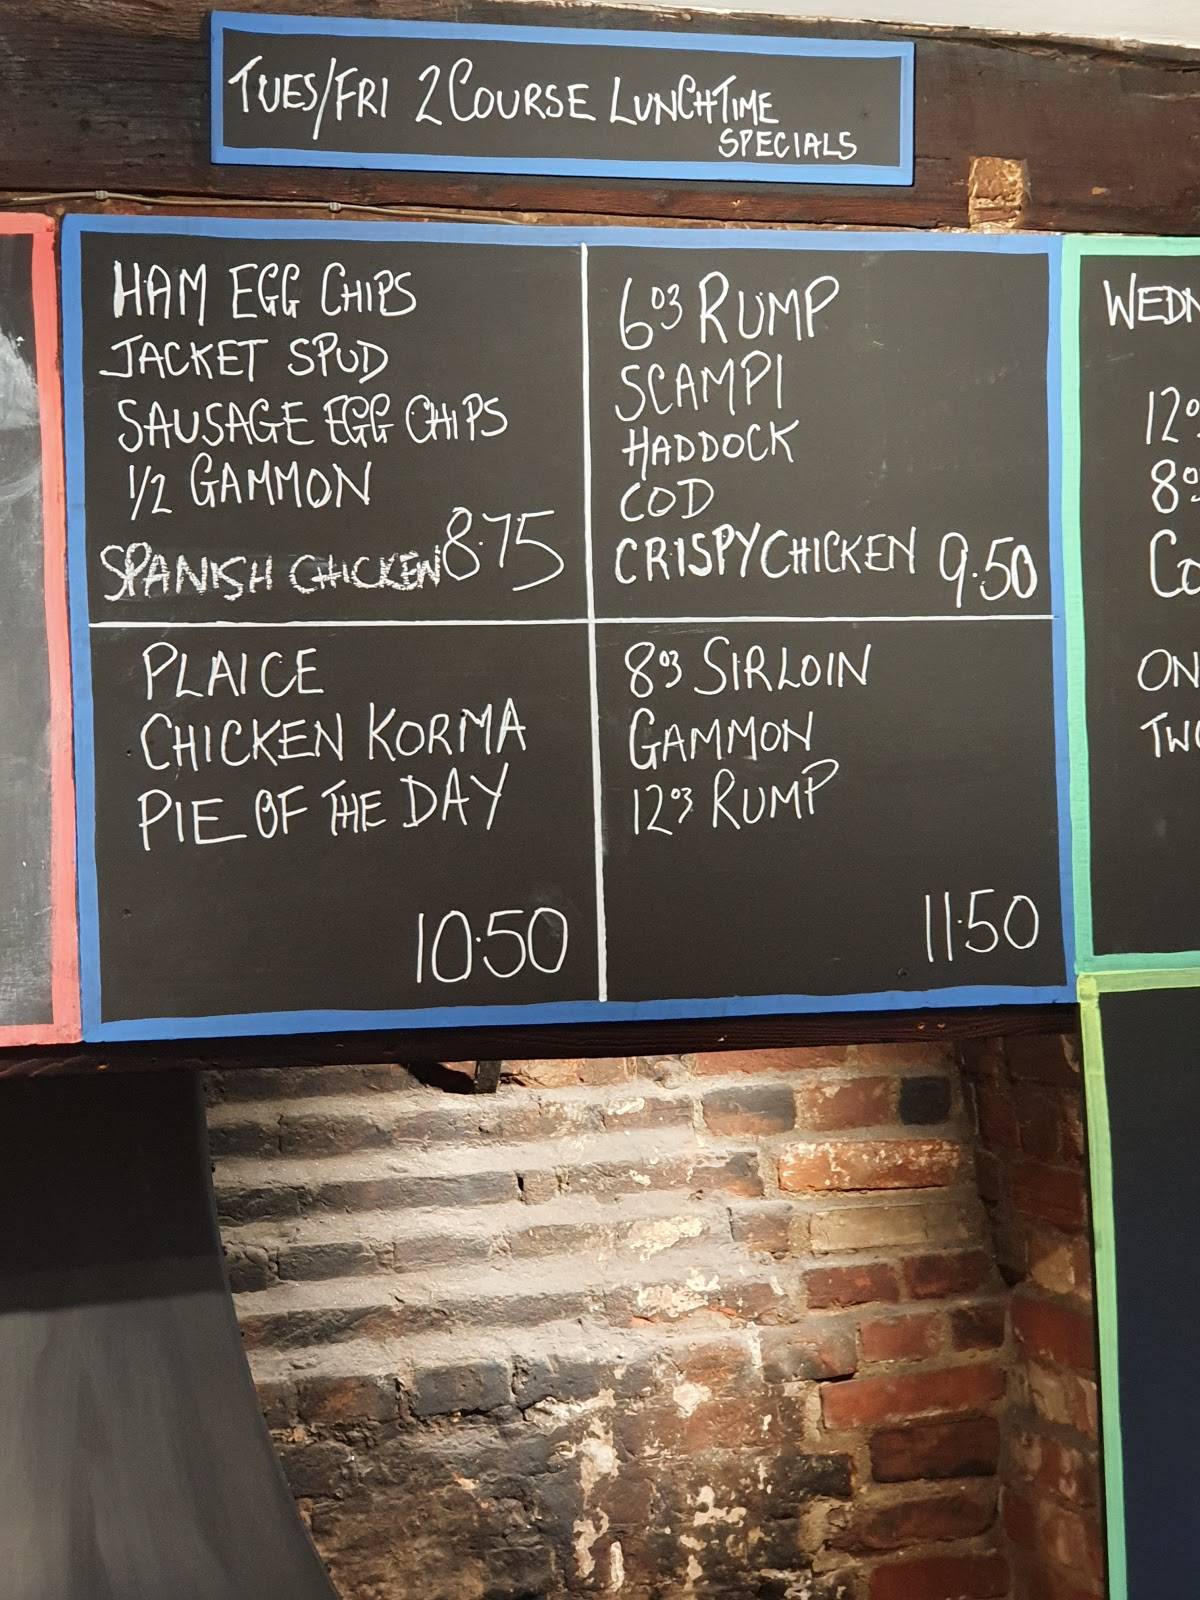 TUES/FRI 2 COURSE LUNCHTIME
SPECIALS
HAM EGG CHIPS
JACKET SPUD
SAUSAGE EGG CHIPS
1/2 GAMMON
SPANISH CHICKEN 8.75
6oz RUMP
SCAMPI
HADDOCK
COD
CRISPY CHICKEN 9.50
PLAICE
CHICKEN KORMA
PIE OF THE DAY
10.50
8oz SIRLOIN
GAMMON
12oz RUMP
11.50